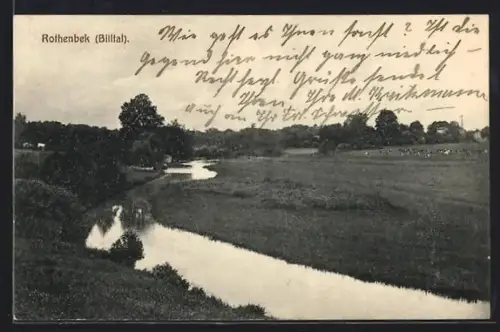 Rothenbek (Billtal).
Wie geht es Ihnen sonst? Ist die
Gegend hier nicht ganz niedlich –
Recht herzl. Grüße sendet
Ihnen Ihre M.
auch an Ihr Frl. Schwester